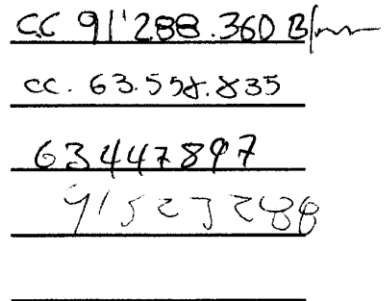 CC 91'288.360 B/
cc. 63.558.835
63447897
91523288